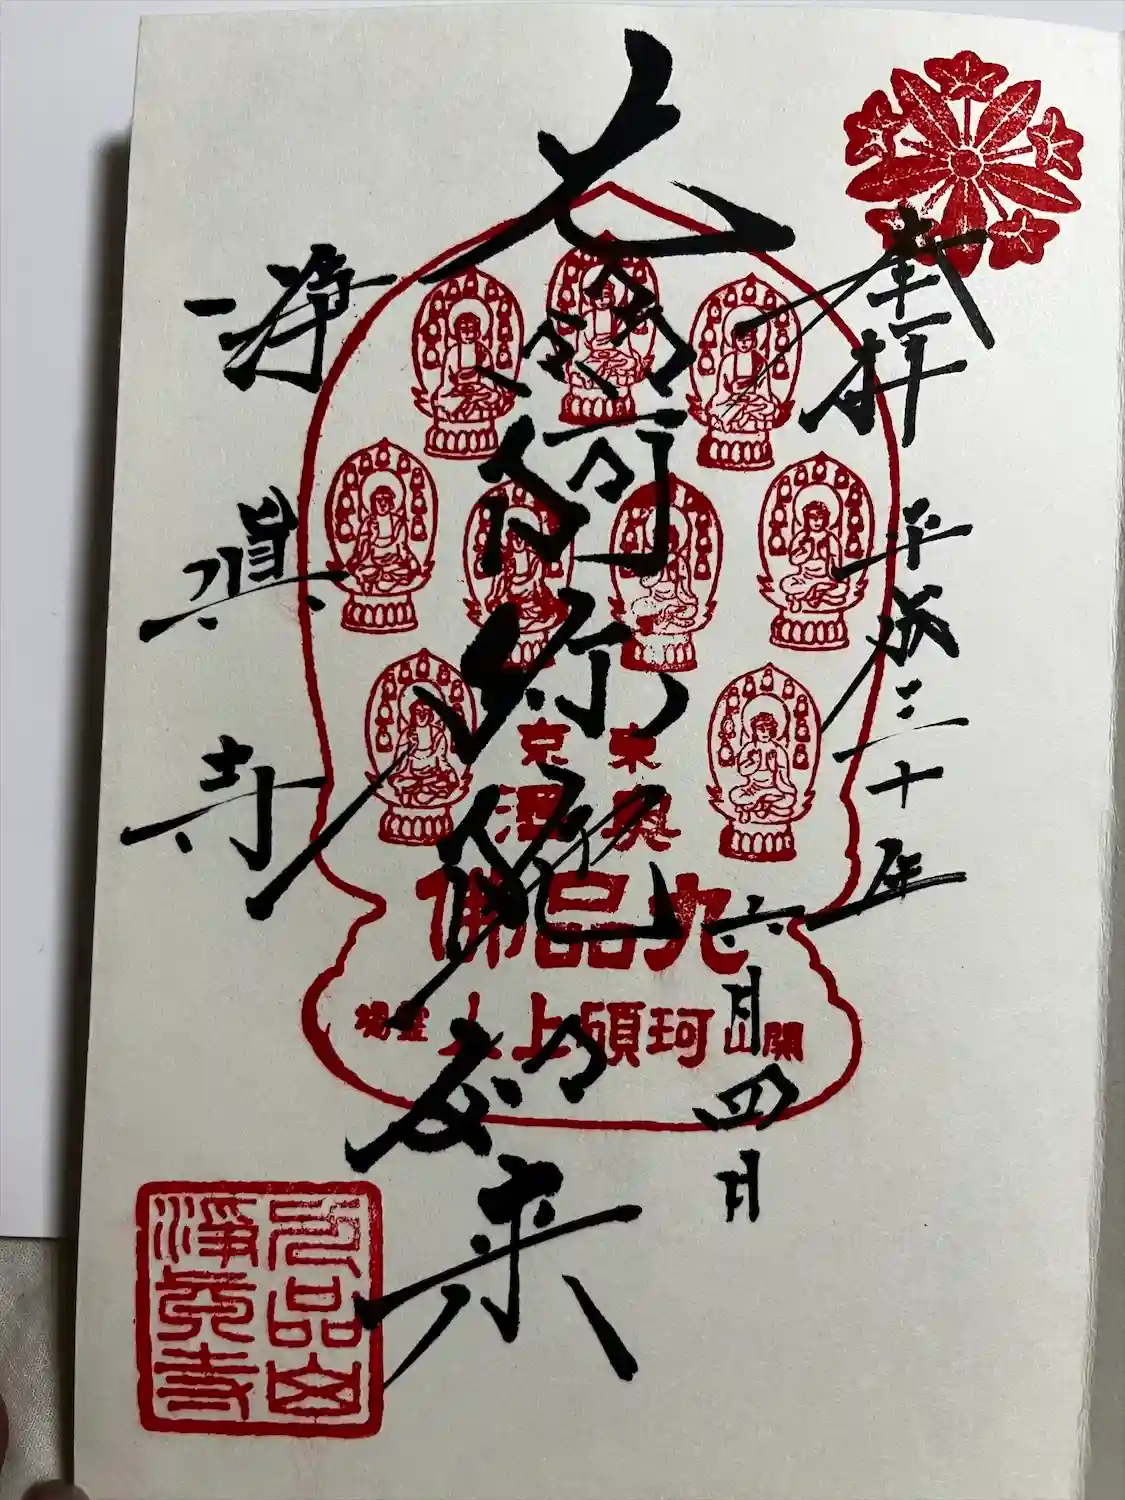 奉拝
平成三十年
六月四日
九品阿弥陀如来
浄真寺
東京
奥澤
九品佛
開山珂碩上人霊場
九品山
淨真寺